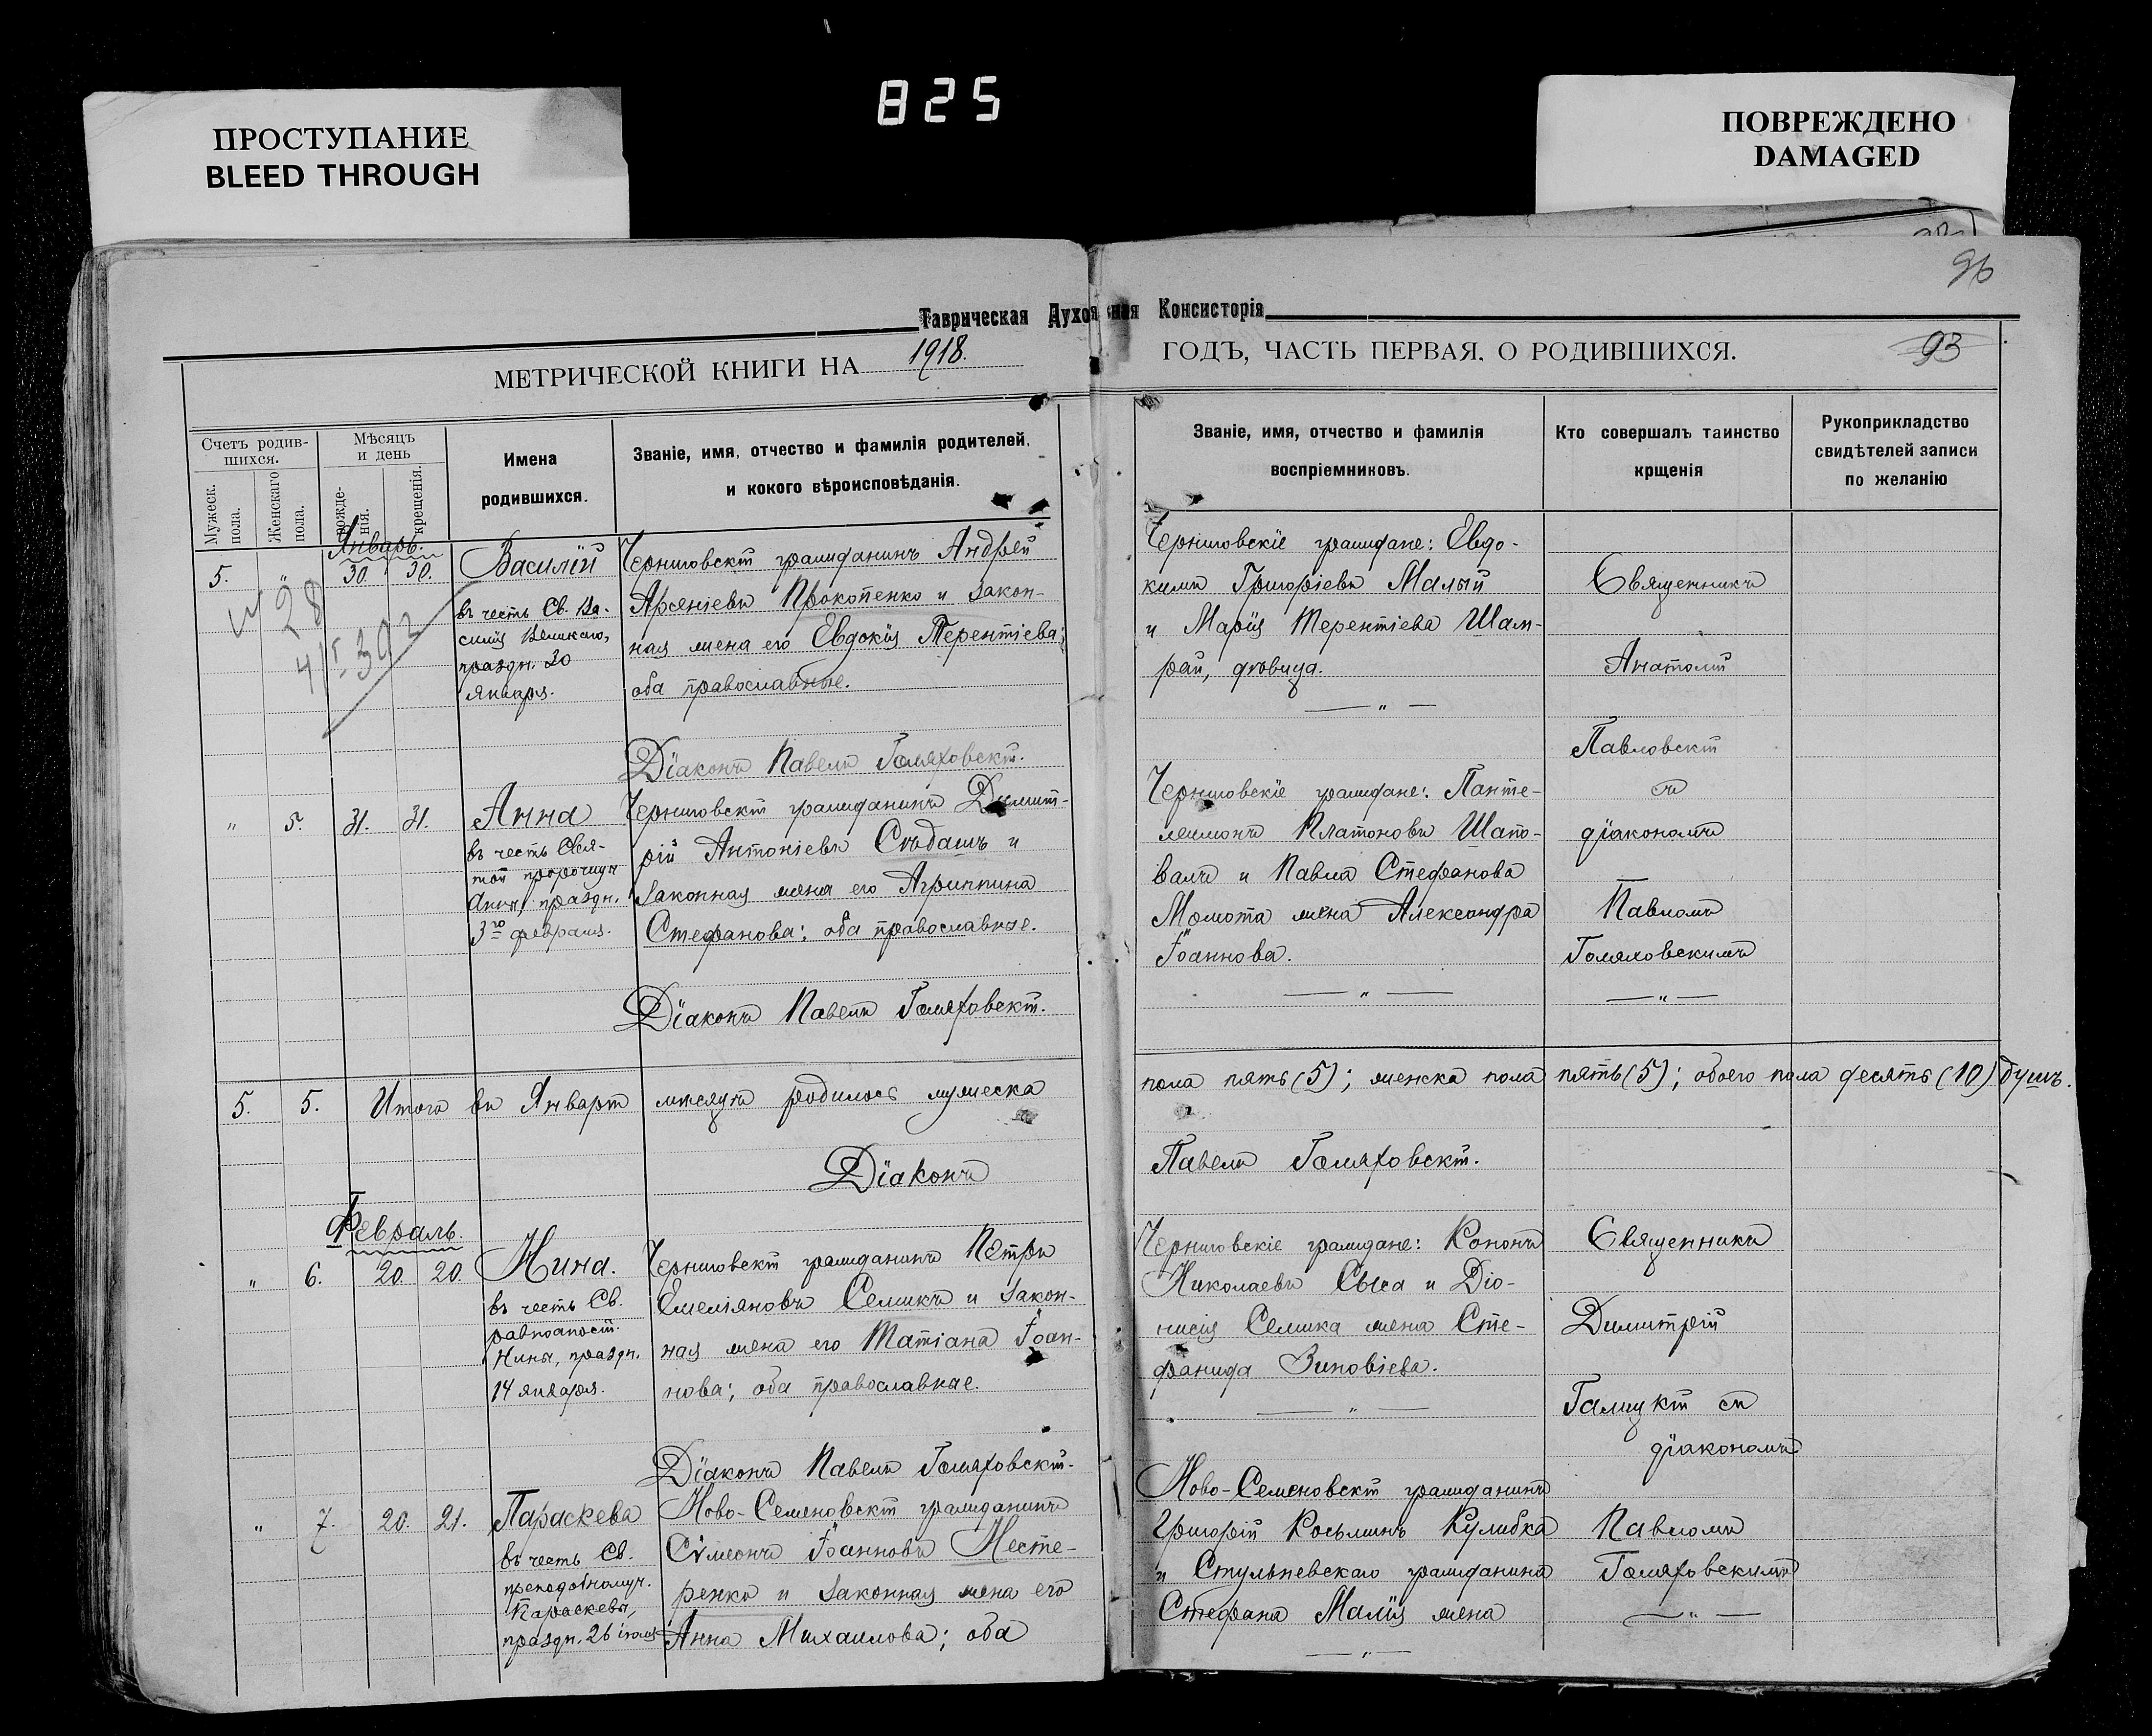 825
ПРОСТУПАНИЕ
BLEED THROUGH
ПОВРЕЖДЕНО
DAMAGED
96
Таврическая Духовная Консисторія
МЕТРИЧЕСКОЙ КНИГИ НА 1918. ГОДЪ, ЧАСТЬ ПЕРВАЯ, О РОДИВШИХСЯ.
93
Счетъ родив-
шихся.
Мужеск.
пола.
Женскаго
пола.
Мѣсяцъ
и день
рожде-
нія.
крещенія.
Имена
родившихся.
Званіе, имя, отчество и фамилія родителей,
и кокого вѣроисповѣданія.
Званіе, имя, отчество и фамилія
воспріемниковъ.
Кто совершалъ таинство
крщенія
Рукоприкладство
свидѣтелей записи
по желанію
Январь.
5. " 30. 30.
28
Василій
въ честь Св. Ва-
силія Великаго,
праздн. 30
января.
Черниговскій гражданинъ Андрей
Арсеніевъ Прокопенко и закон-
ная жена его Евдокія Терентіева;
оба православные.
Діаконъ Павелъ Гомяховскій.
Черниговскіе граждане: Евдо-
кимъ Григоріевъ Малый
и Марія Терентіева Шам-
рай, дѣвица.
Священникъ
Анатолій
Павловскій
съ
діакономъ
Павломъ
Гомяховскимъ
" 5. 31. 31.
Анна
въ честь Свя-
той пророчицы
Анны, праздн.
3го февраля.
Черниговскій гражданинъ Димит-
рій Антоніевъ Сѣдашъ и
законная жена его Агриппина
Стефанова; оба православные.
Діаконъ Павелъ Гомяховскій.
Черниговскіе граждане: Панте-
леимонъ Платоновъ Шапо-
валъ и Павла Стефанова
Момота жена Александра
Іоаннова.
5. 5. Итого въ Январѣ мѣсяцѣ родилось мужеска пола пять (5); женска пола пять (5); обоего пола десять (10) душъ.
Діаконъ Павелъ Гомяховскій.
Февраль.
" 6. 20. 20.
Нина.
въ честь Св.
равноапост.
Нины, праздн.
14 января.
Черниговскій гражданинъ Петръ
Емеліяновъ Семикъ и закон-
ная жена его Татіана Іоан-
нова; оба православные.
Діаконъ Павелъ Гомяховскій.
Черниговскіе граждане: Кононъ
Николаевъ Сыса и Діо-
нисія Семика жена Сте-
фанида Зиновіева.
Священникъ
Димитрій
Галицкій съ
діакономъ
Павломъ
Гомяховскимъ
" 7. 20. 21.
Параскева
въ честь Св.
преподобномуч.
Параскевы,
праздн. 26 іюля
Ново-Семеновскій гражданинъ
Сѵмеонъ Іоанновъ Несте-
ренко и законная жена его
Анна Михаилова; оба
Ново-Семеновскій гражданинъ
Григорій Косьминъ Кулибка
и Стульневскаго гражданина
Стефана Малія жена